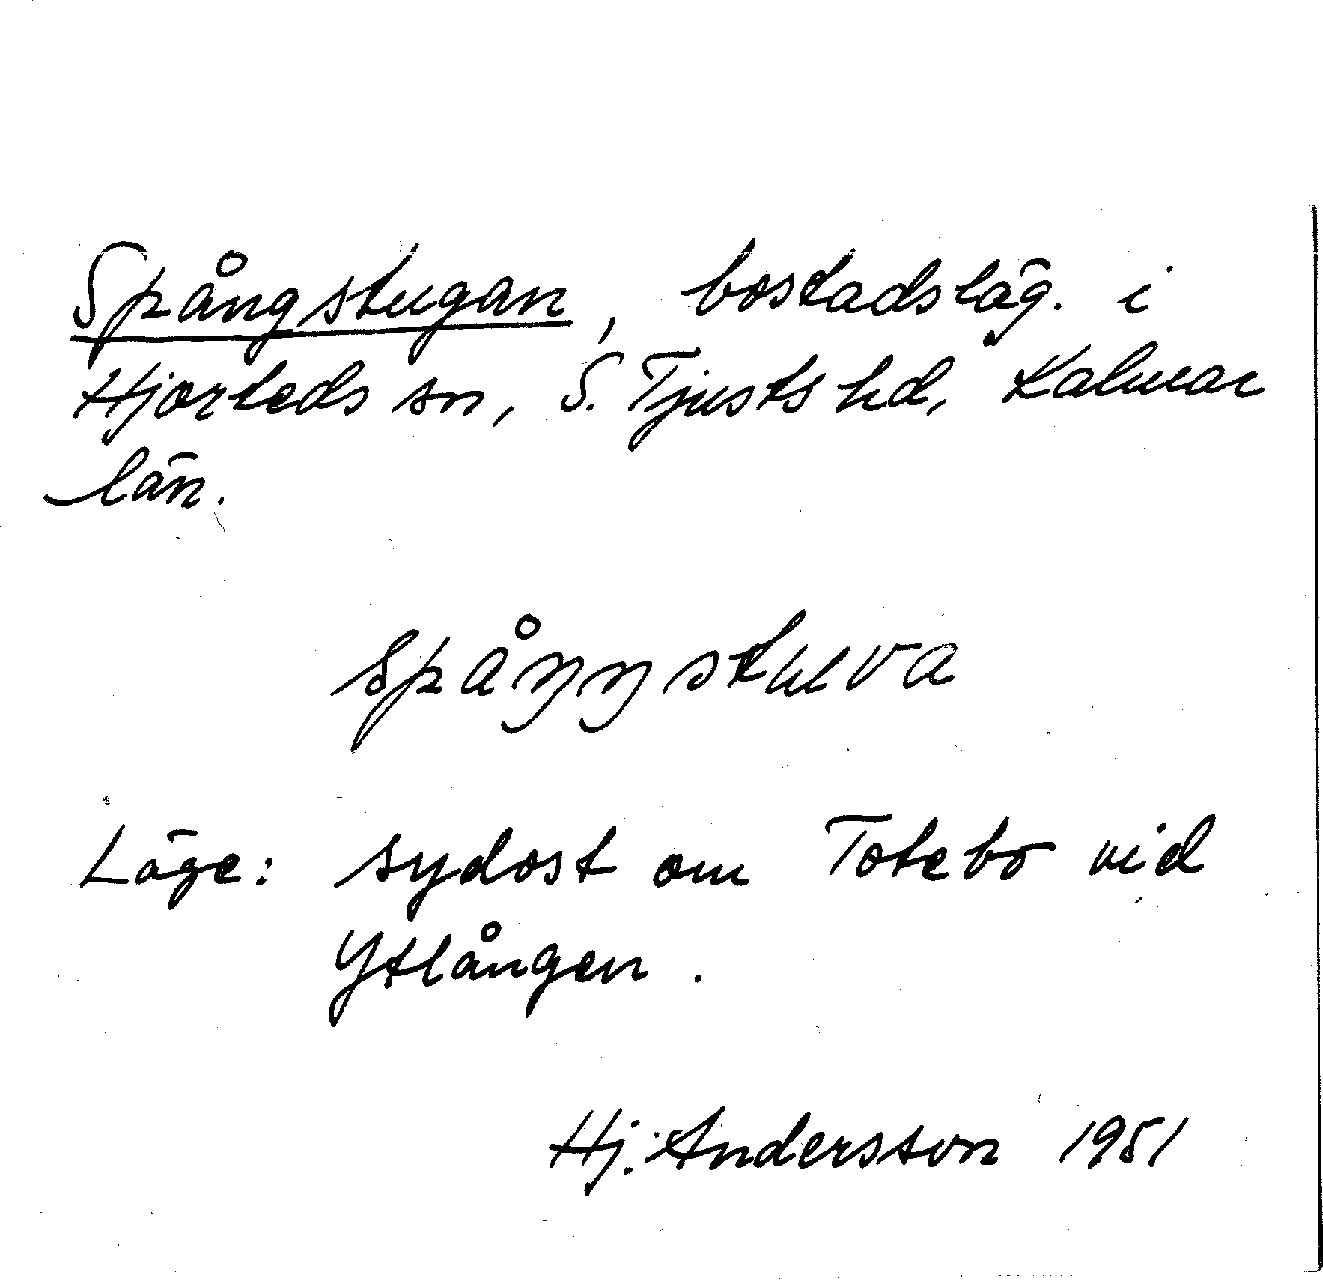 Spångstugan, bostadsläg. i
Hjorteds sn, S. Tjusts hd, Kalmar
län.
spåŋŋstuva
Läge: sydost om Totebo vid
Ytlången.
Hj. Andersson 1951